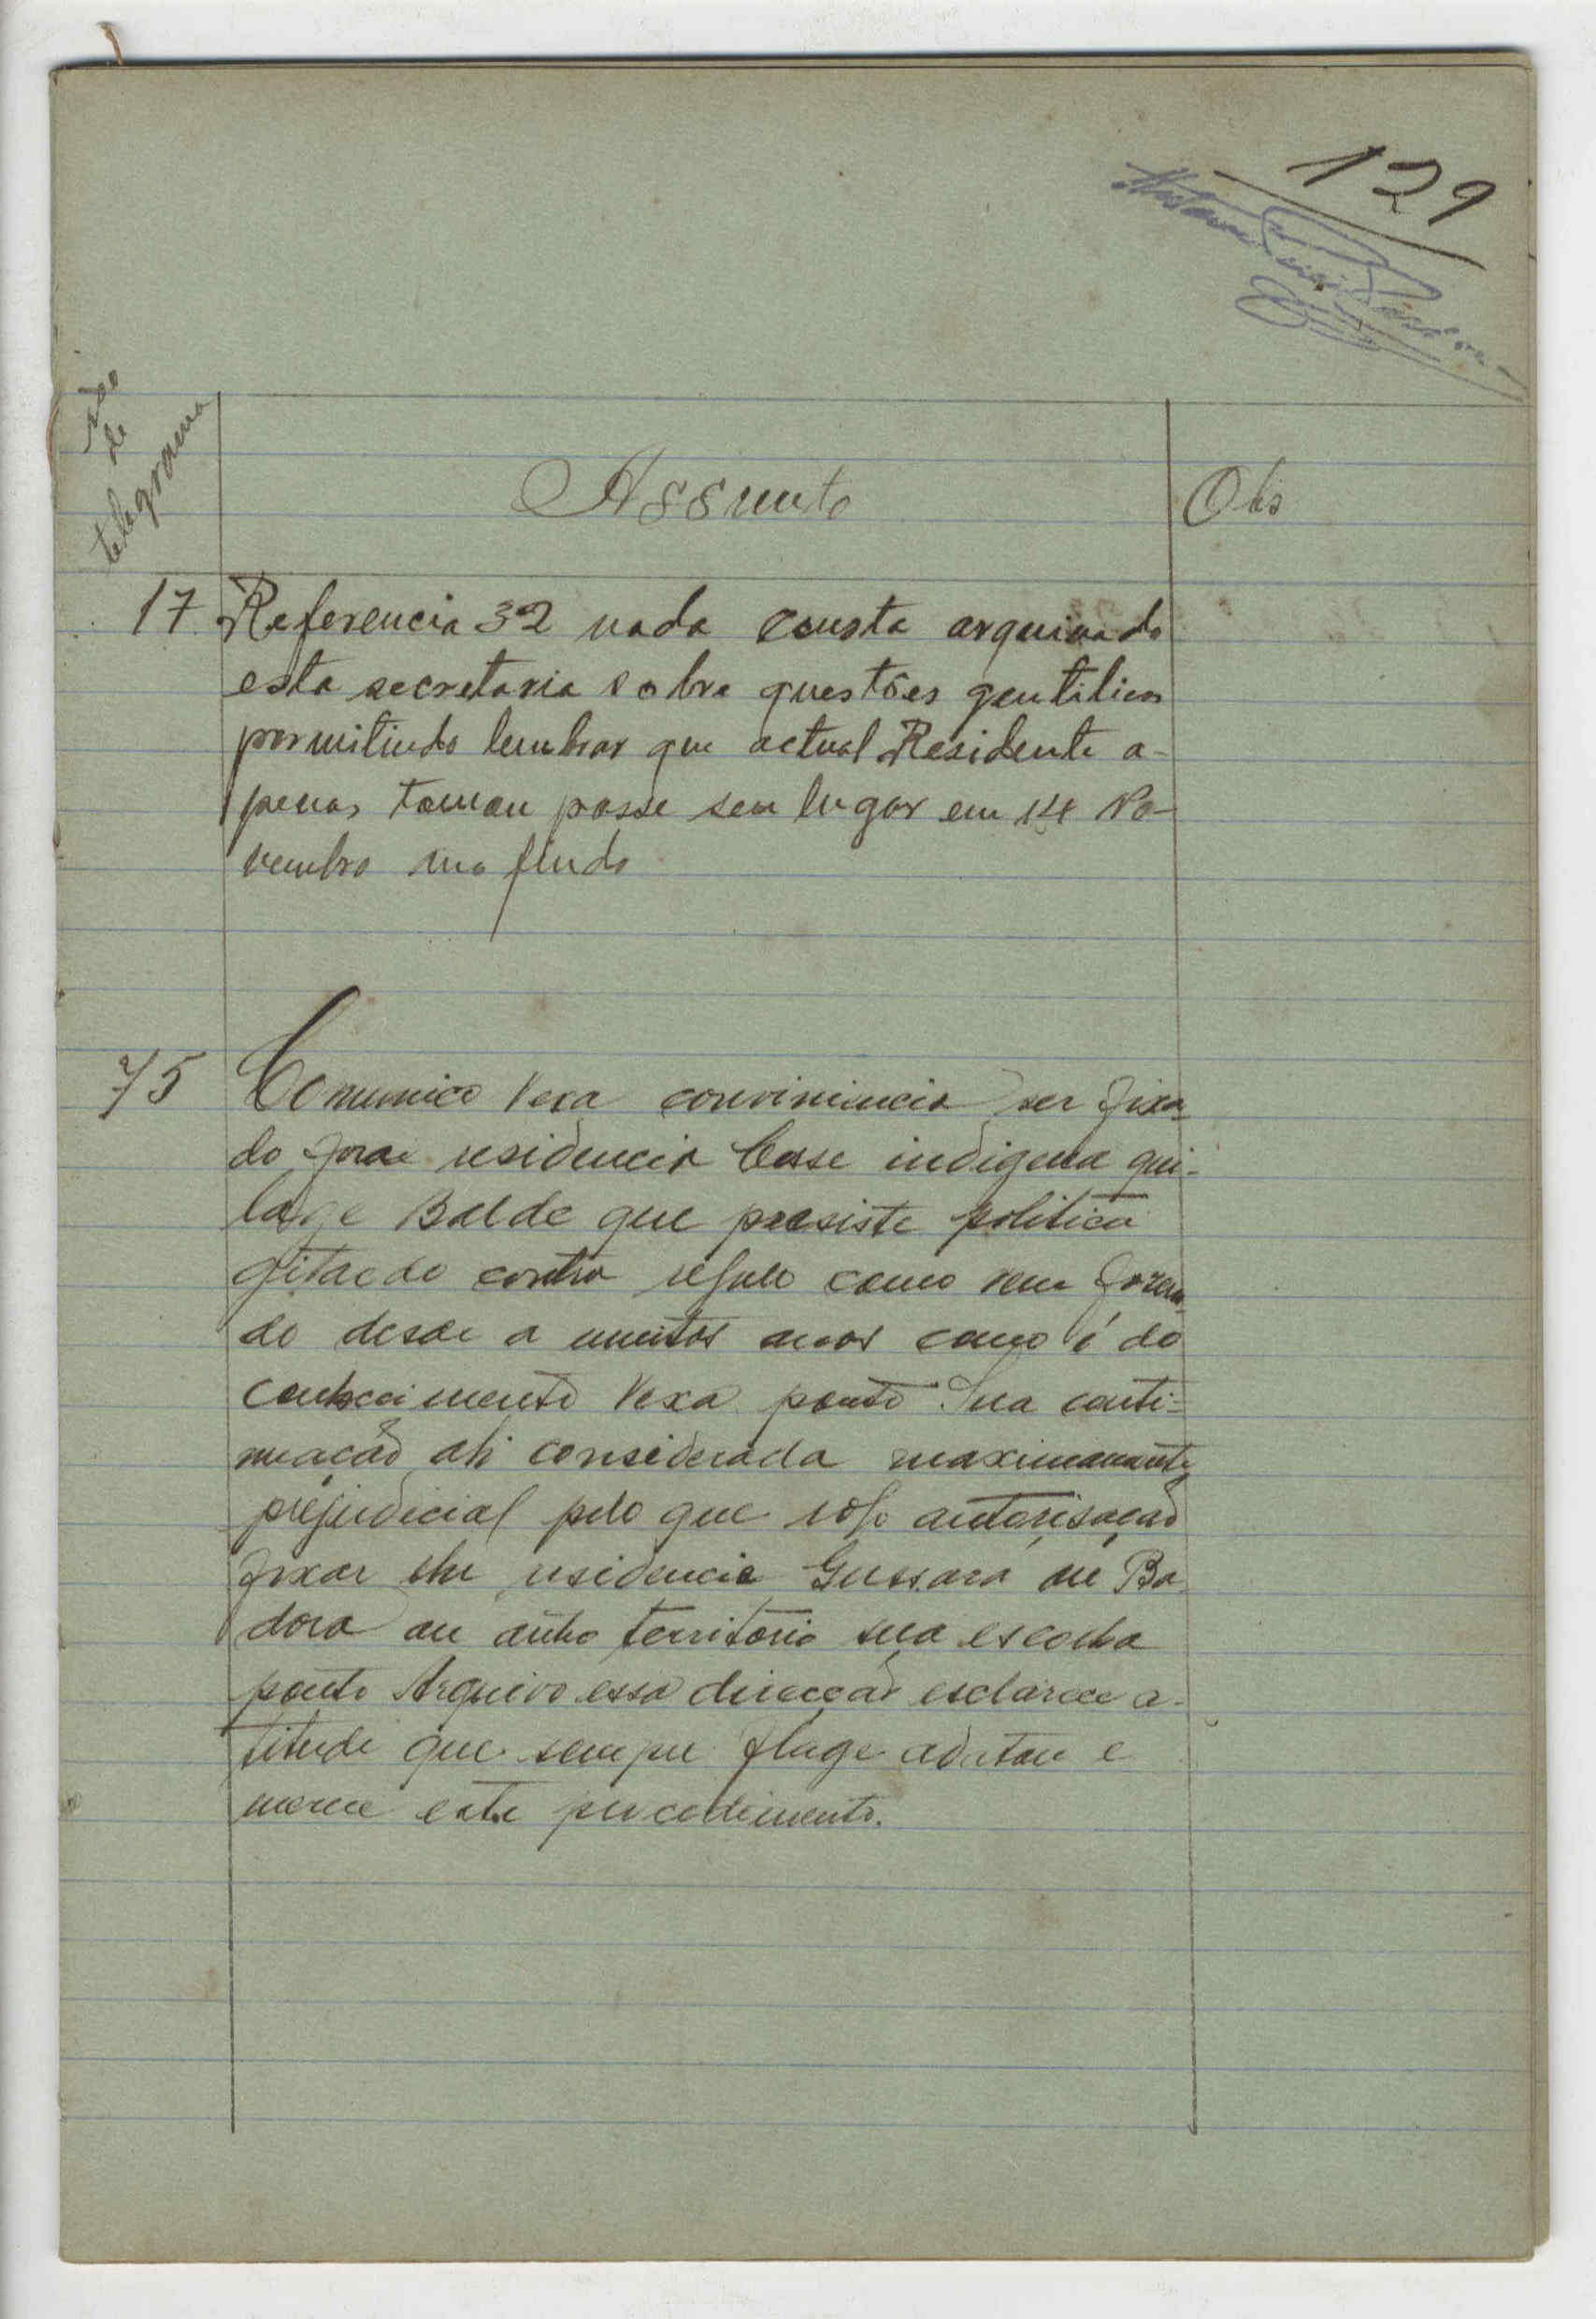 129
Nº
de
telegrama
Assunto
Obs
17 Referencia 32 nada consta arquivado
esta secretaria sobre questões gentilicas
permitindo lembrar que actual Residente a-
penas tomou posse seu lugar em 14 No-
vembro ano findo
75 Comunico Vexa conviniencia ser fixa
do fora residencia Cosse indigena qui-
Balde que presiste politica
contra regulo como vem fazen-
do desde a muitos anos como é do
conhecimento Vexa ponto Sua conti-
nuação ali considerada maximamente
prejudicial pelo que rogo autorisação
fixar lhe residencia Gussará ou Ba
dora ou outro territorio sua escolha
ponto Arquivo essa direcção esclarece a-
titude que sempre adutou e
merece este procedimento.